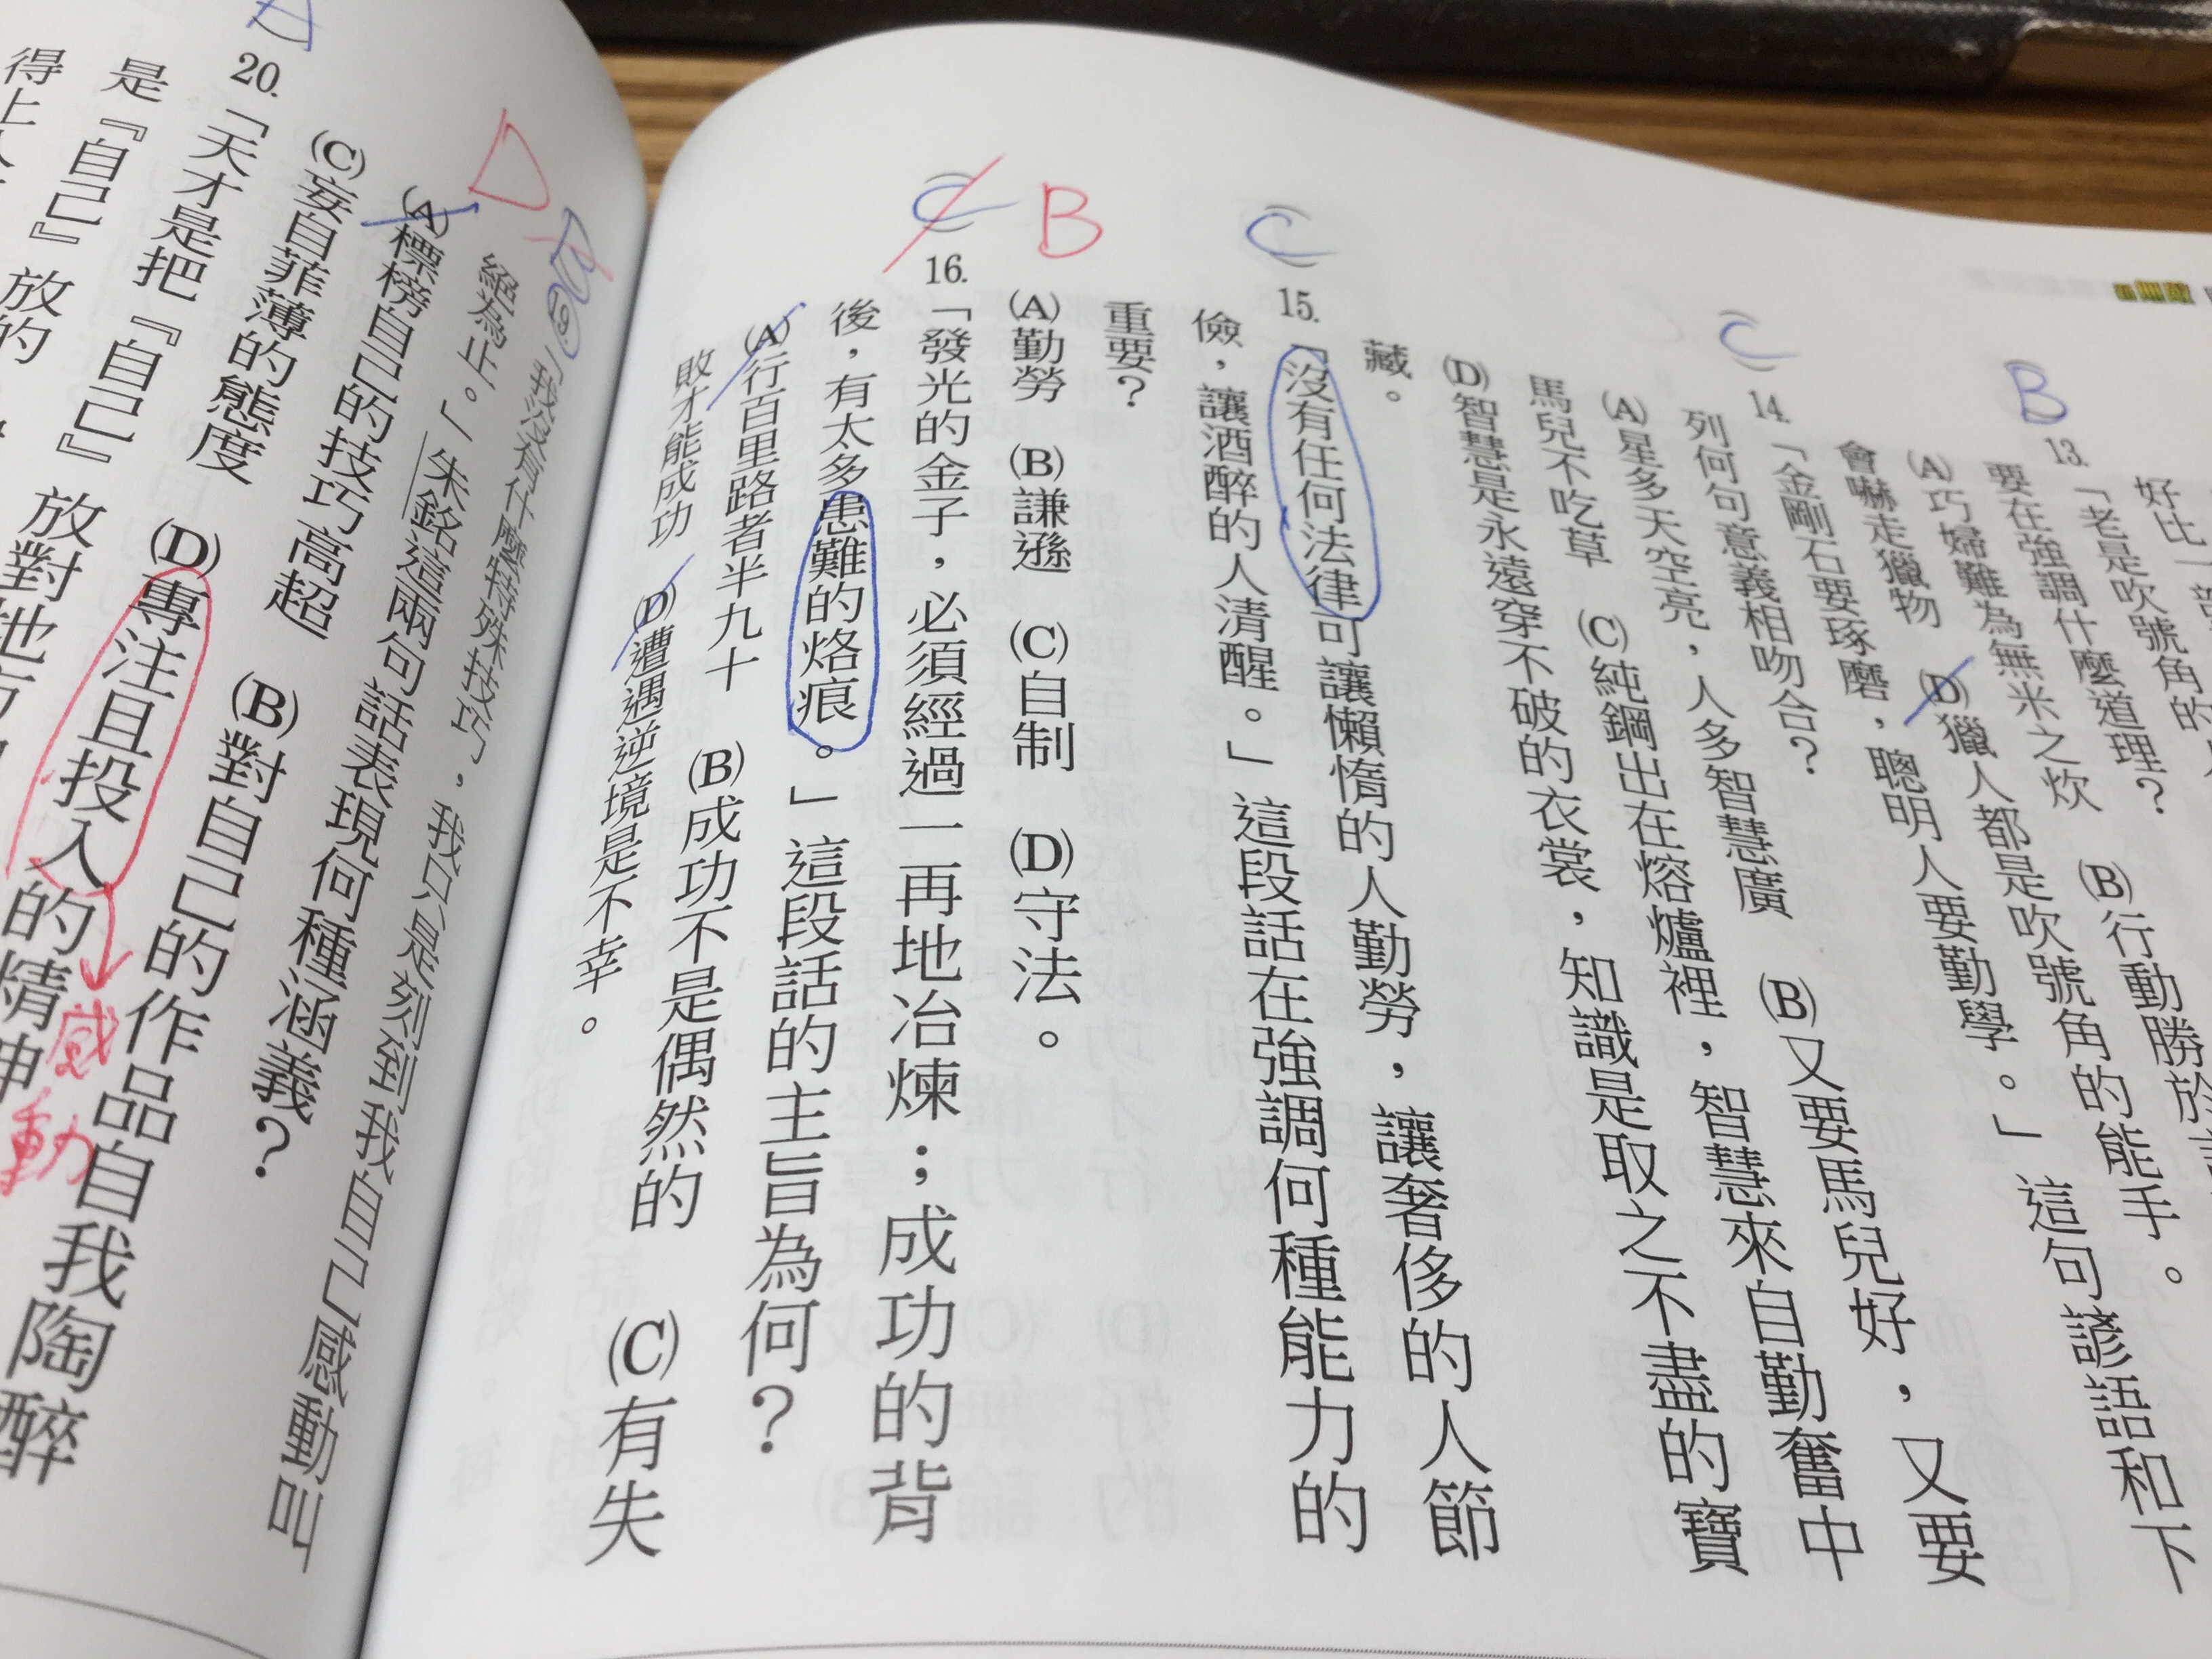 好比一
B
13.「老是吹號角的
要在強調什麼道理?
(A)巧婦難為無米之炊 (B)行動勝於
會嚇走獵物 (D)獵人都是吹號角的能手。
C
14.「金剛石要琢磨,聰明人要勤學。」這句諺語和下
列何句意義相吻合?
(A)星多天空亮,人多智慧廣 (B)又要馬兒好,又要
馬兒不吃草 (C)純鋼出在熔爐裡,智慧來自勤奮中
(D)智慧是永遠穿不破的衣裳,知識是取之不盡的寶
藏。
C
15.「沒有任何法律可讓懶惰的人勤勞,讓奢侈的人節
儉,讓酒醉的人清醒。」這段話在強調何種能力的
重要?
(A)勤勞 (B)謙遜 (C)自制 (D)守法。
C B
16.「發光的金子,必須經過一再地冶煉;成功的背
後,有太多患難的烙痕。」這段話的主旨為何?
(A)行百里路者半九十 (B)成功不是偶然的 (C)有失
敗才能成功 (D)遭遇逆境是不幸。
D
19.「我沒有什麼特殊技巧,我只是刻到我自己感動叫
絕為止。」朱銘這兩句話表現何種涵義?
(A)標榜自己的技巧高超 (B)對自己的作品自我陶醉
(C)妄自菲薄的態度 (D)專注且投入的精神
感動
A
20.「天才是把『自己』放對地方
是『自己』放的
得上